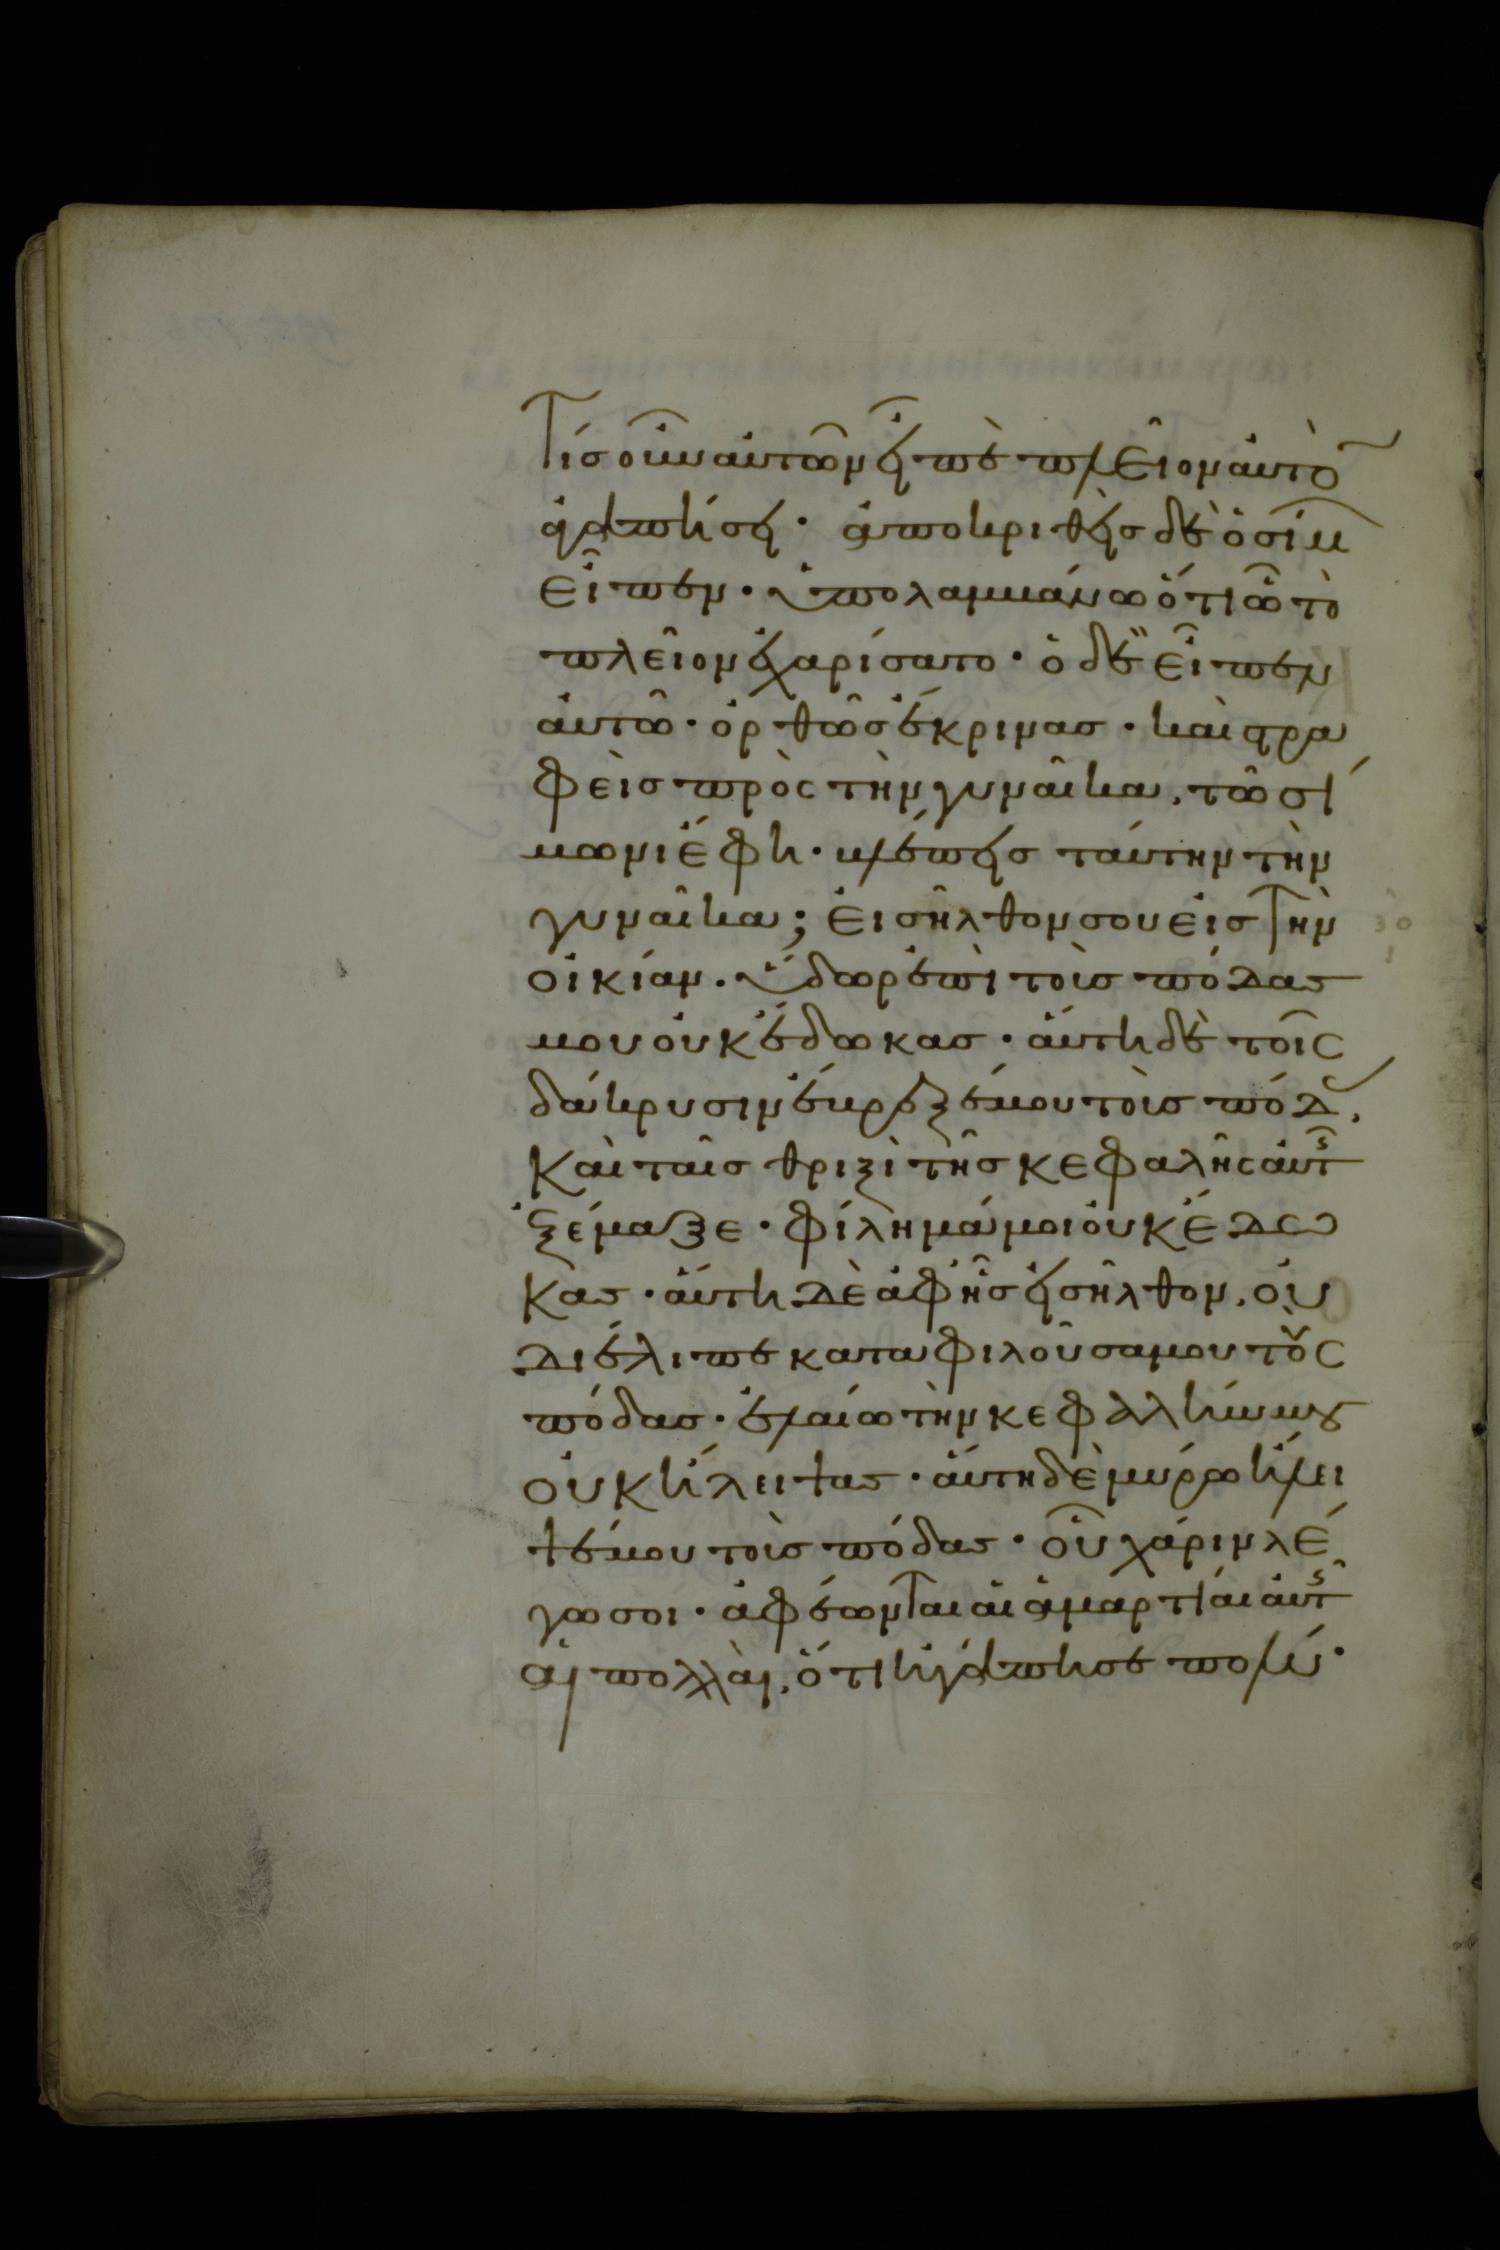 Τίς οὖν αὐτῶν εἰπὲ πλεῖον αὐτὸ
ἀγαπήσει· ἀποκριθεὶς δὲ ὁ σίμ
εἶπεν· ὑπολαμβάνω ὅτι ὧ τὸ
πλεῖον ἐχαρίσατο· ὁ δὲ εἶπεν
αὐτῶ· ὀρθῶς ἔκρινας· καὶ στρα
φεὶς πρὸς τὴν γυναῖκα, τῶ σί
μωνι ἔφη· βλέπεις ταύτην τὴν
γυναῖκα; εἰσῆλθον σου εἰς τὴν
οἰκίαν. ὕδωρ ἐπὶ τοὺς πόδας
μου οὐκ ἔδωκας· αὕτη δὲ τοῖς
δάκρυσιν ἔβρεξέ μου τοὺς πόδ,
Καὶ ταῖς θριξὶ τῆς κεφαλῆς αὐτ
ἐξέμαξε· φίλημά μοι οὐκ ἔδω
κας· αὕτη δὲ ἀφ ἧς εἰσῆλθον, οὐ
διέλιπε καταφιλοῦσα μου τοὺς
πόδας· ἐλαίω τὴν κεφαλήν μου
οὐκ ἤλειψας· αὕτη δὲ μύρω ἤλει
ψέ μου τοὺς πόδας· οὗ χάριν λέ
γω σοι· ἀφέωνται αἱ ἁμαρτίαι αὐτ
αἱ πολλαὶ, ὅτι ἠγάπησε πολύ·